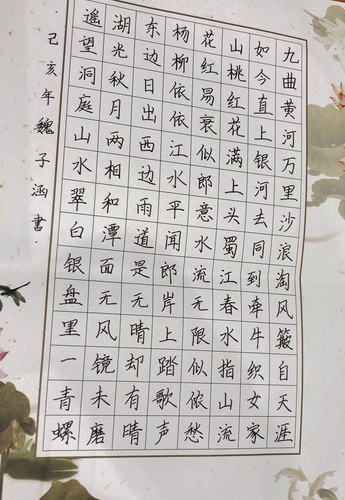 九曲黄河万里沙浪淘风簸自天涯
如今直上银河去同到牵牛织女家
山桃红花满上头蜀江春水指山流
花红易衰似郎意水流无限似侬愁
杨柳依依江水平闻郎岸上踏歌声
东边日出西边雨道是无晴却有晴
湖光秋月两相和潭面无风镜未磨
遥望洞庭山水翠白银盘里一青螺
己亥年魏子涵书.